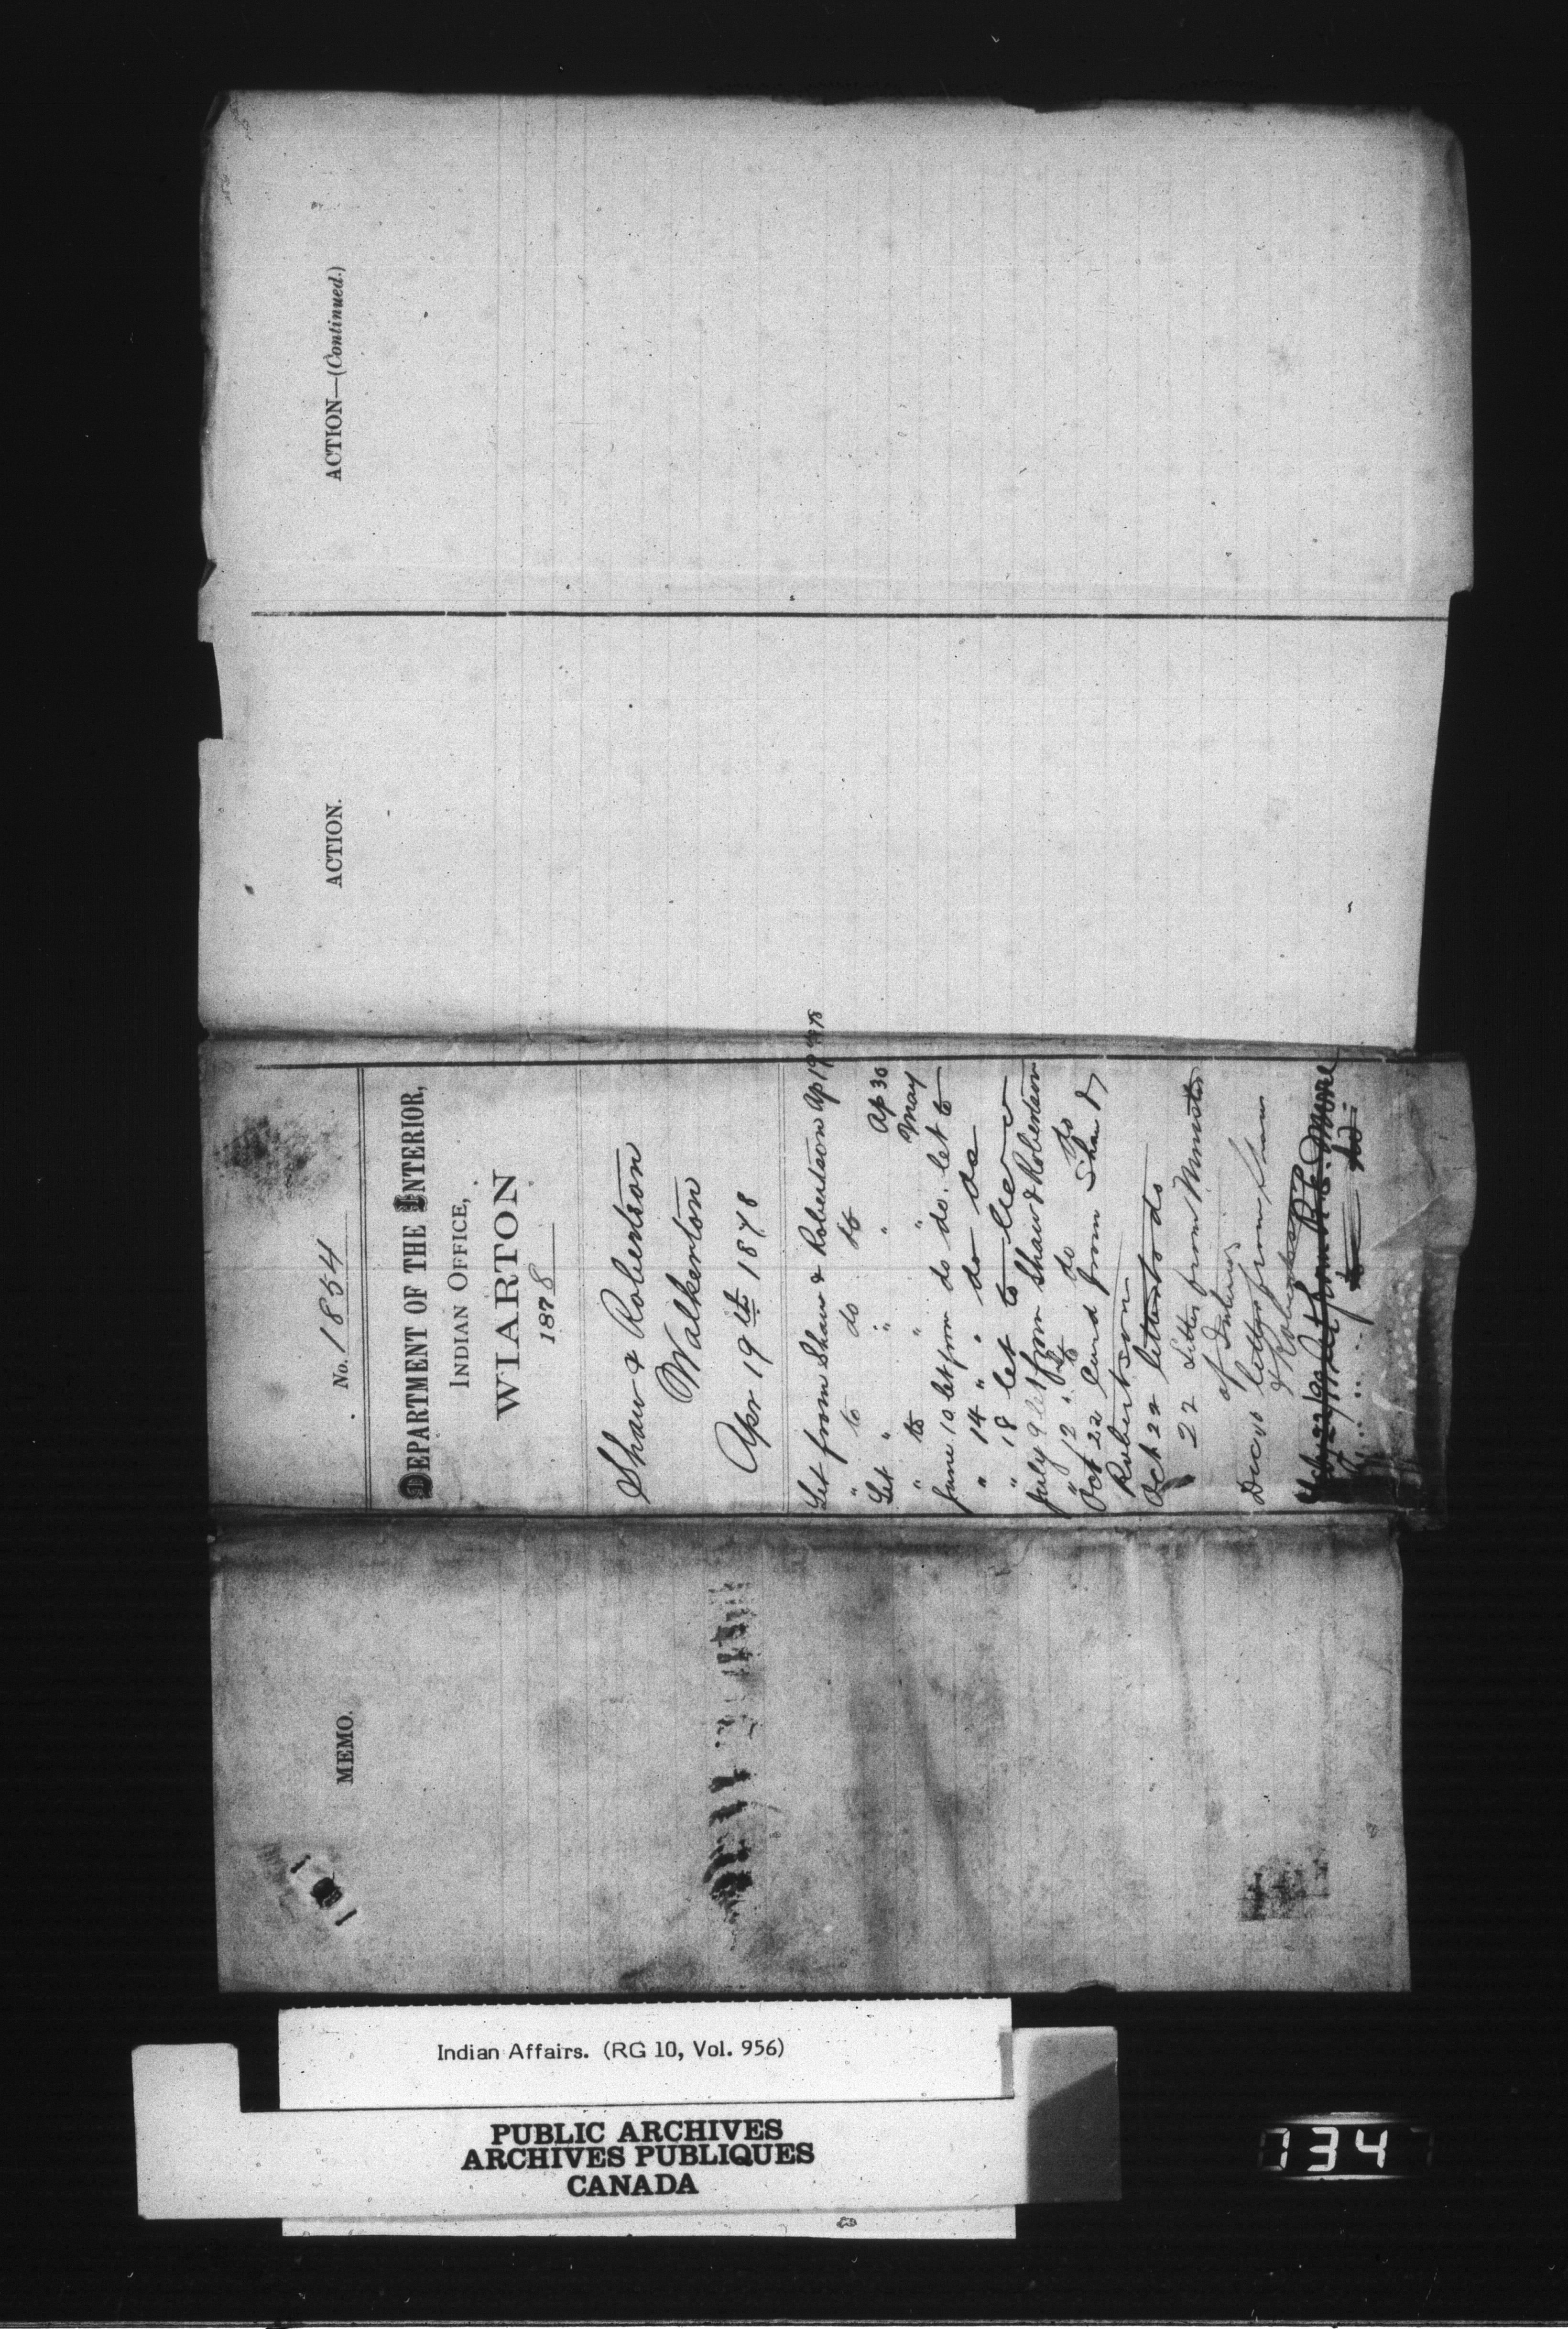 ACTION—(Continued.)
ACTION.
No. 1854
DEPARTMENT OF THE INTERIOR,
INDIAN OFFICE,
WIARTON
1878
Shaw & Robertson
Walkerton
Apr 19th 1878
Let from Shaw & Robertson Ap 19
" to do do
Let " " " Ap 30
" to " " May
June 10 let from do do. let to
" 14 " " do do
" 18 let to
July 9 let from Shaw & Robertson
" 12 " to do do
Oct 22 Card from Shaw &
Robertson
Oct 22 letter to do
" 22 Letter from Minister
of Interior
Dec letter from Shaw
& Robertson
MEMO.
Indian Affairs. (RG 10, Vol. 956)
PUBLIC ARCHIVES
ARCHIVES PUBLIQUES
CANADA
734